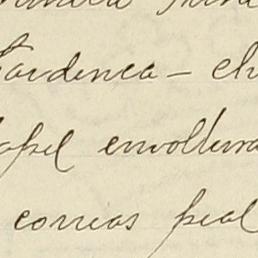 Gardenea — ch
papel envollura
correas peal